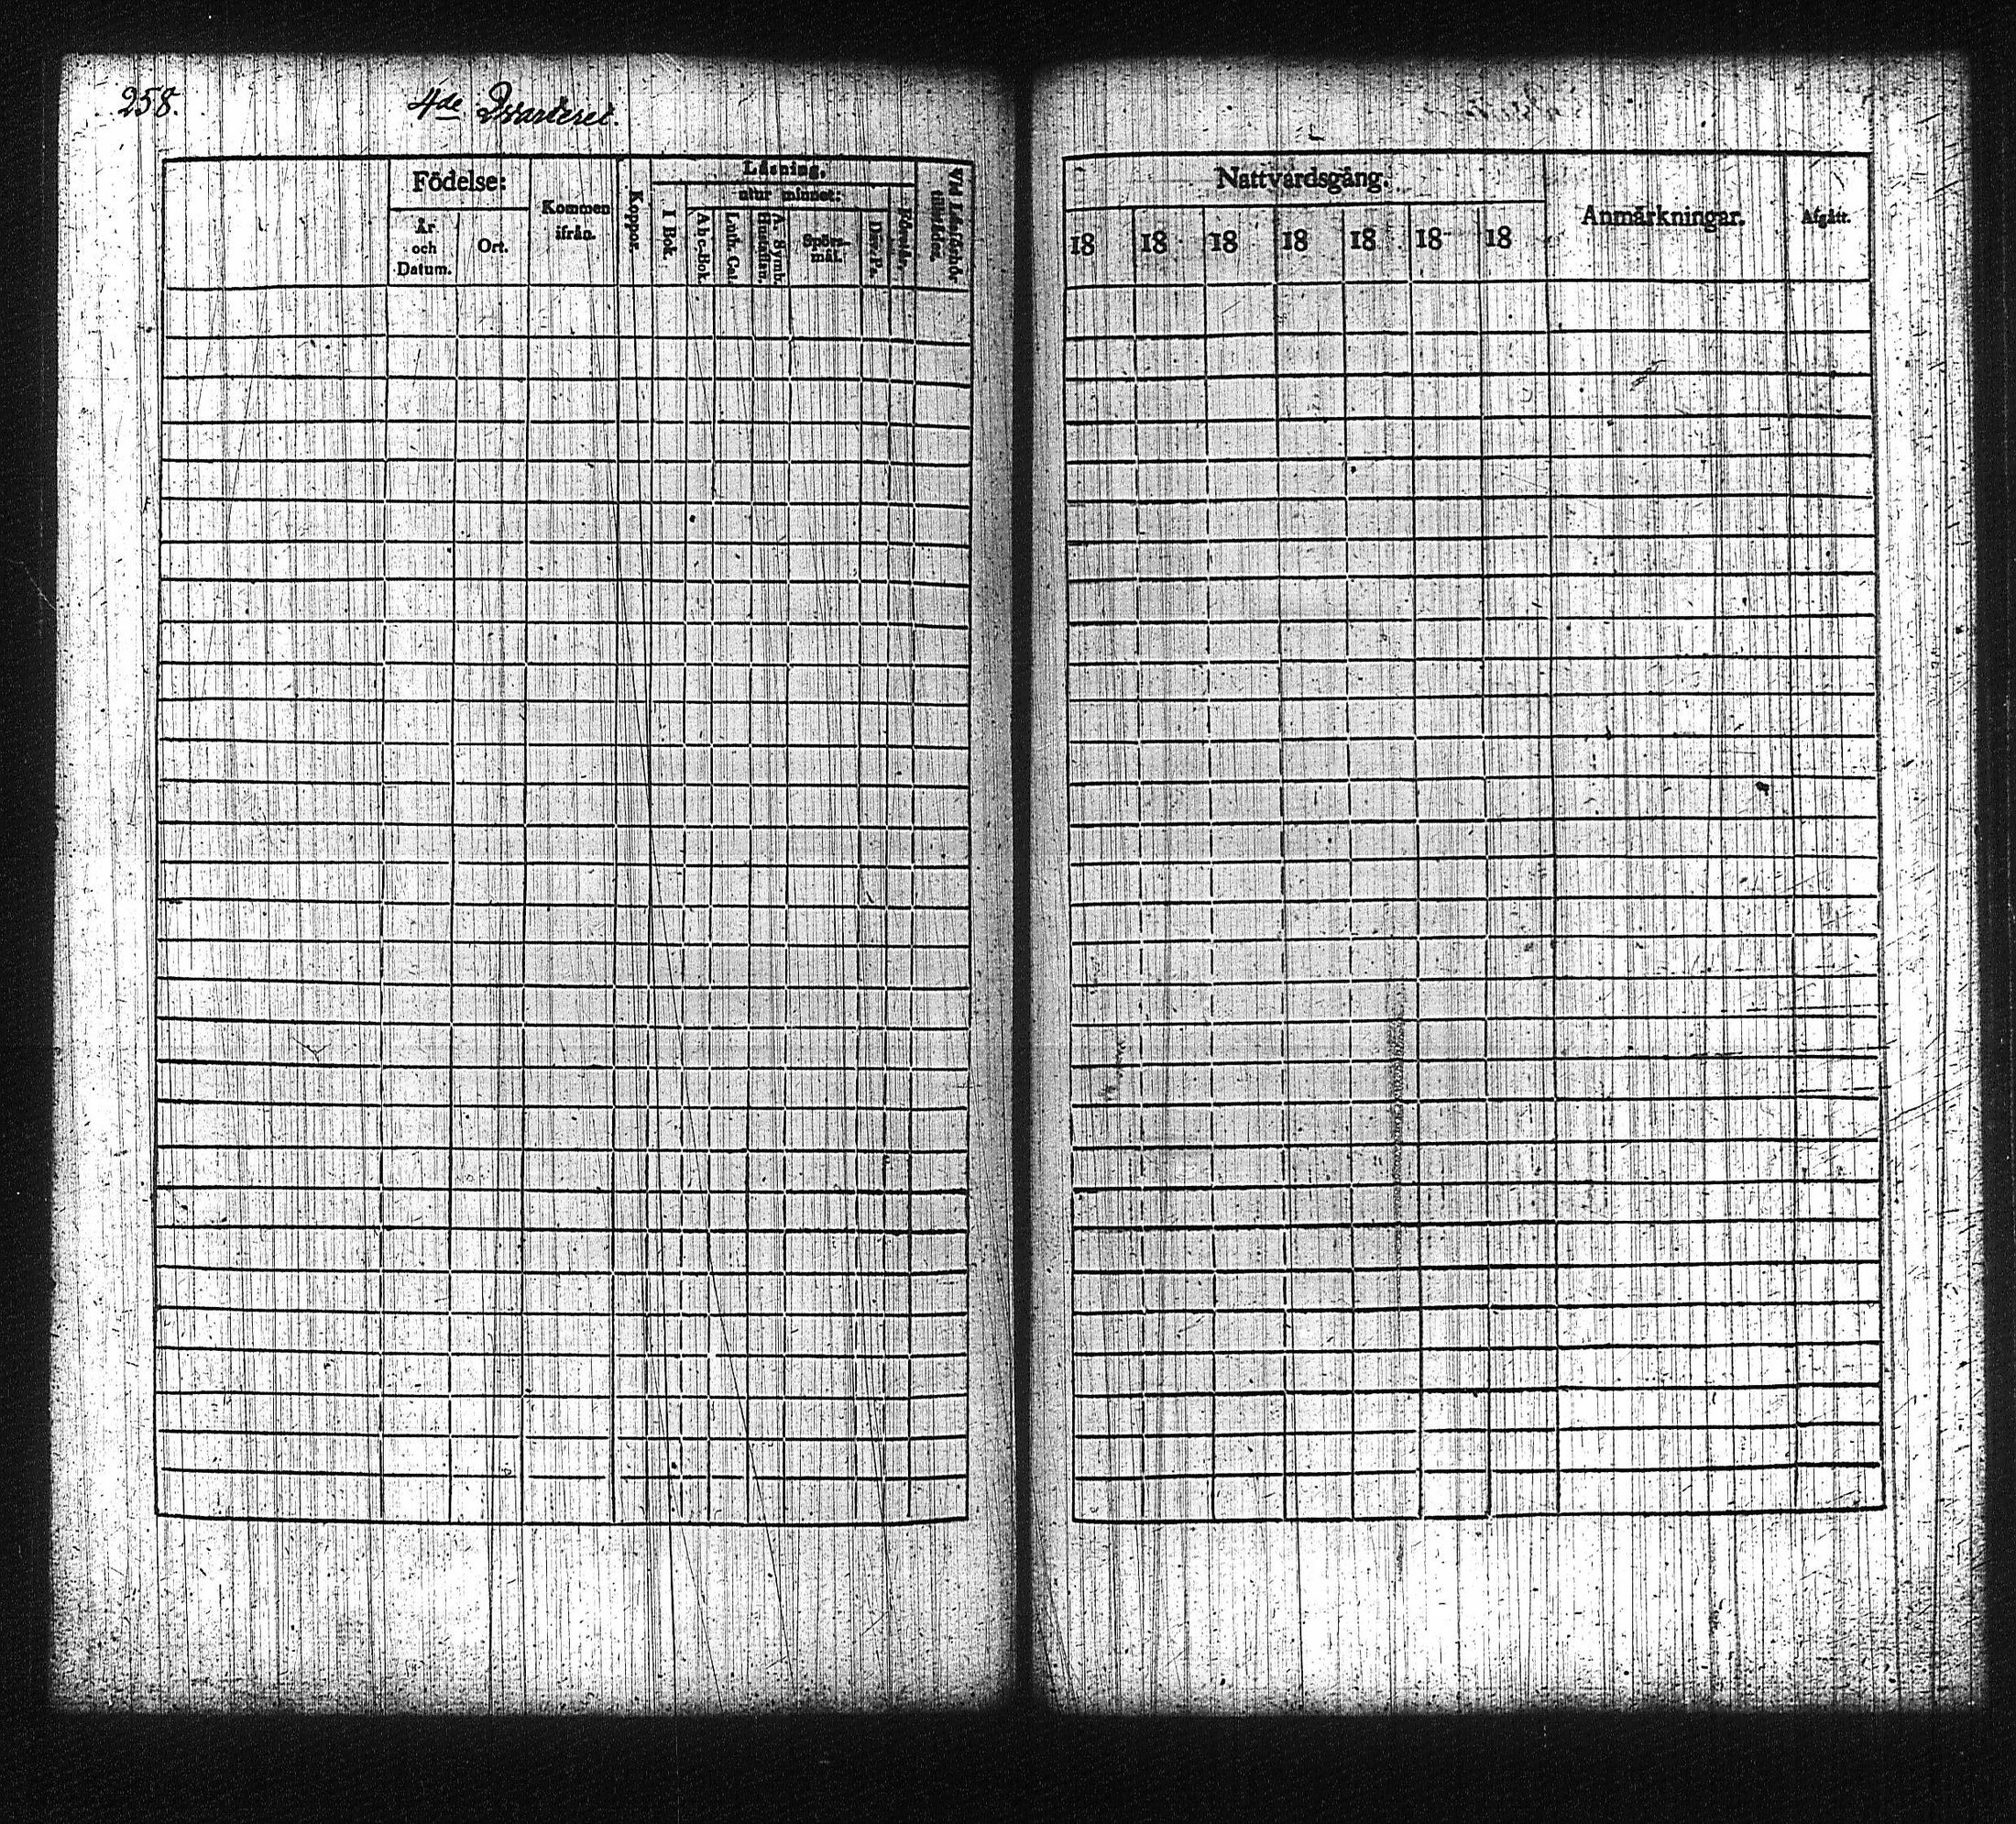 258.
4de Qvarteret.
Födelse:
År
och
Datum.
Ort.
Kommen
ifrån.
Koppor.
Läsning.
I Bok.
utur minnet:
A b c-Bok.
Luth. Cat.
A. Symb.
Hustaflan.
Spörs-
mål.
Dav. Ps.
Förstår.
Vid Läsförhör
tillstädes.
Nattvardsgång.
18 18 18 18 18 18 18
Anmärkningar.
Afgått.